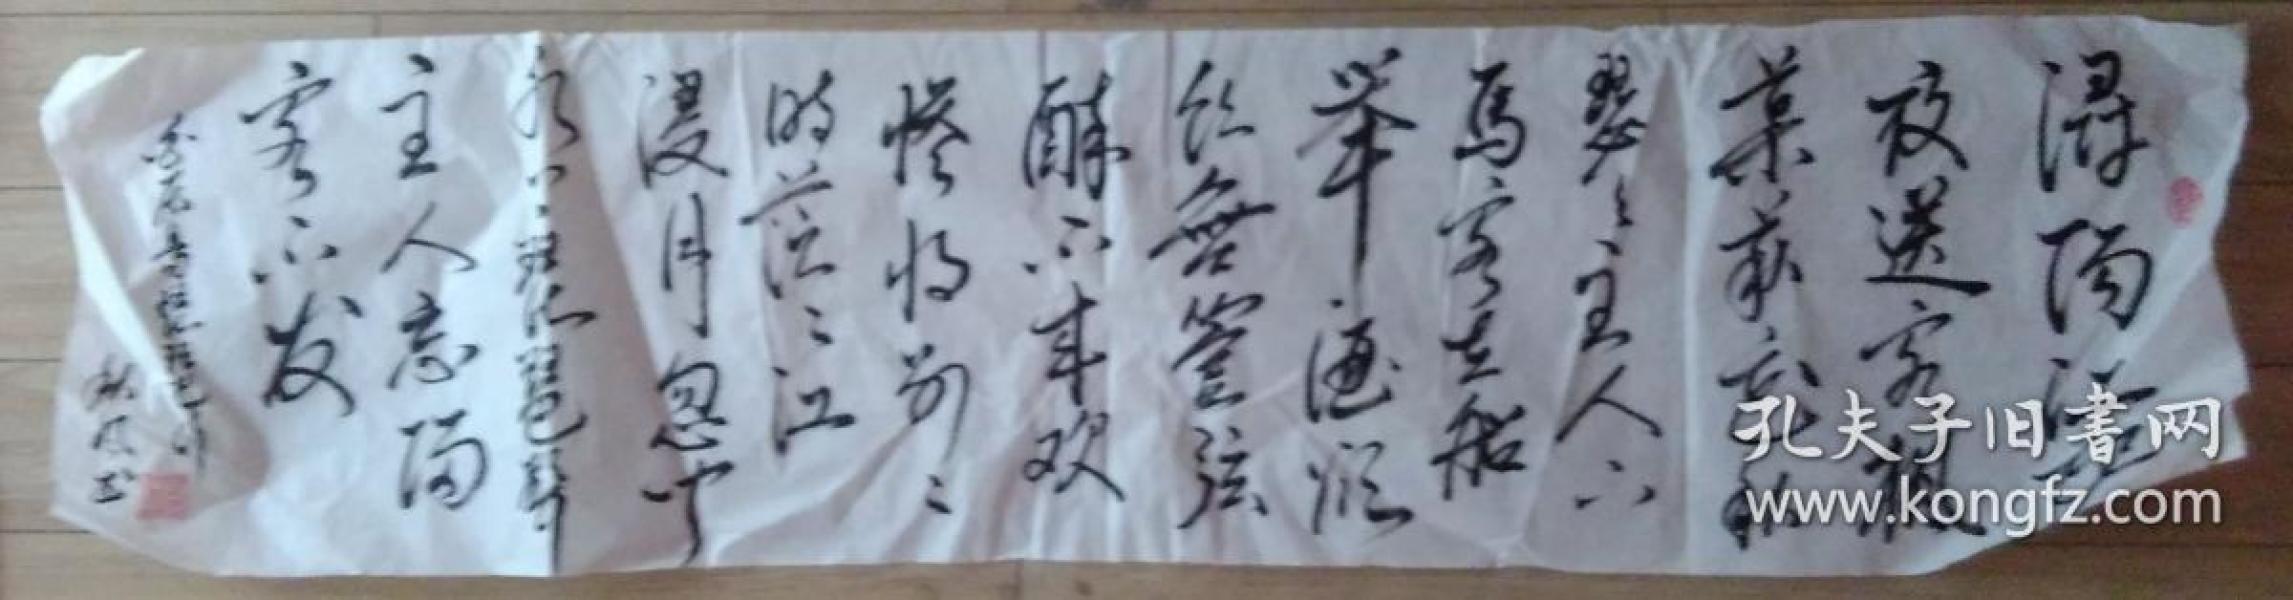 潯陽江頭
夜送客楓
葉荻花秋
瑟々主人下
馬客在船
舉酒欲
飲無管弦
醉不成欢
惨将别々
时茫々江
浸月忽闻
水上琵琶聲
主人忘归
客不发
琵琶行
孔夫子旧书网
www.kongfz.com